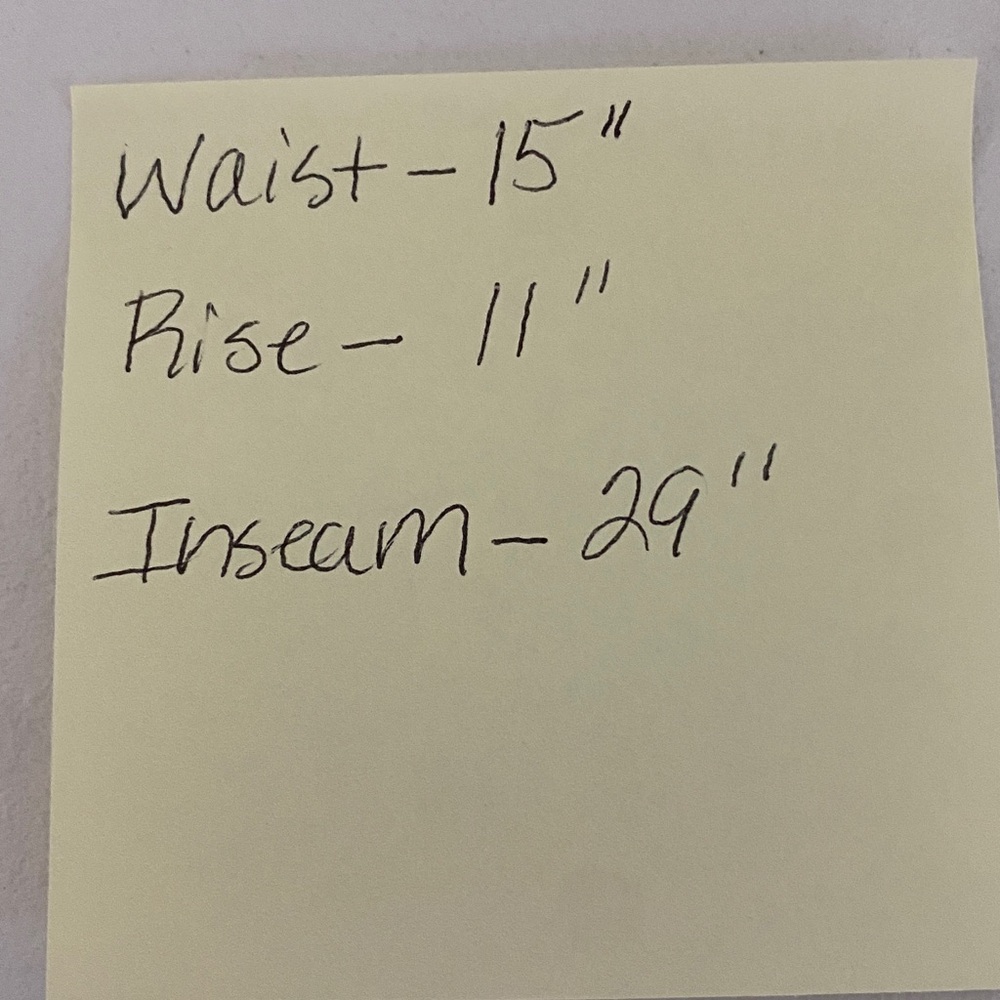 Waist - 15"
Rise - 11"
Inseam - 29"